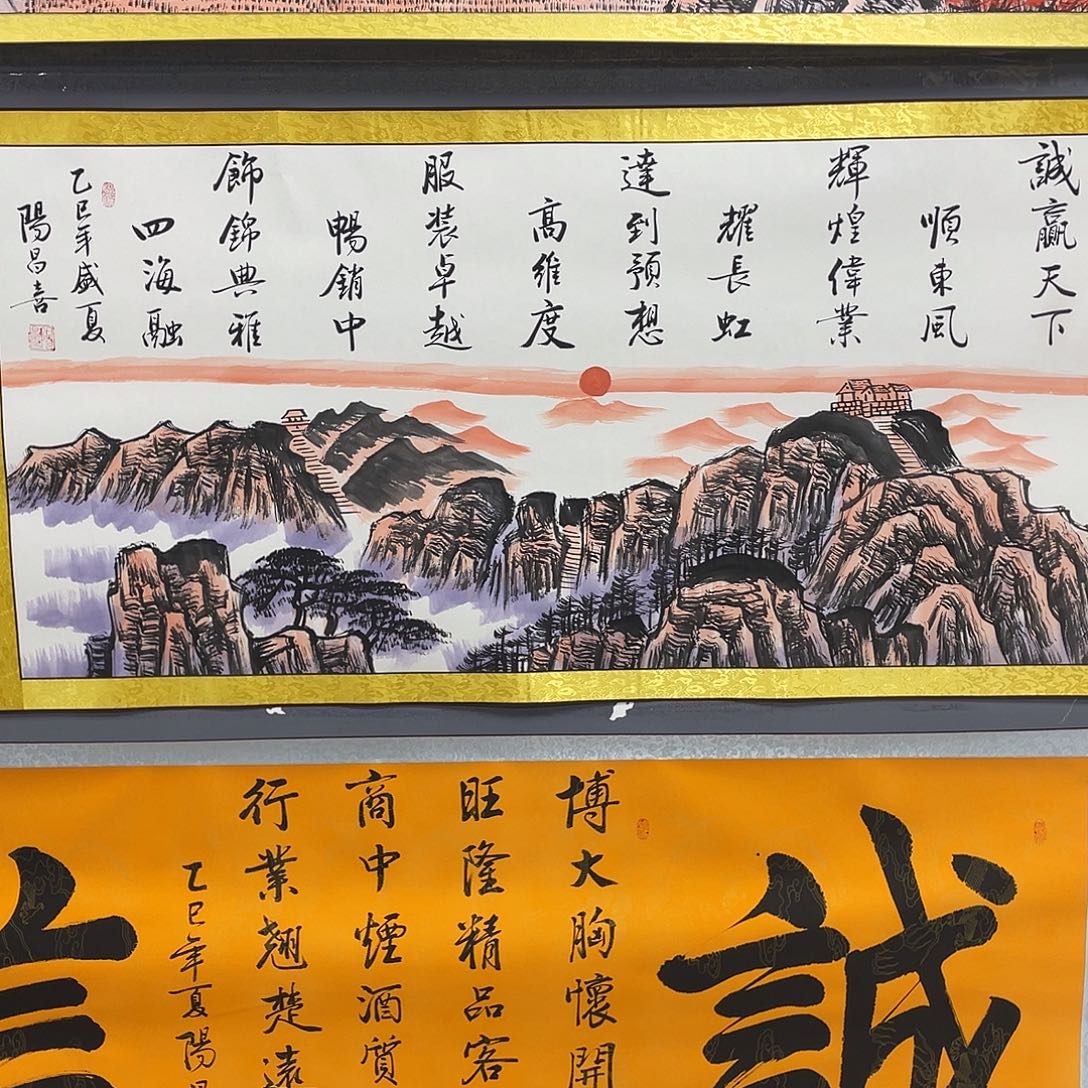 誠贏天下
順東風
輝煌偉業
耀長虹
達到預想
高維度
服装卓越
暢銷中
飾錦典雅
四海融
乙巳年盛夏
陽昌喜
誠
博大胸懷開
旺隆精品客
商中煙酒質
行業翘楚遠
乙巳年夏陽